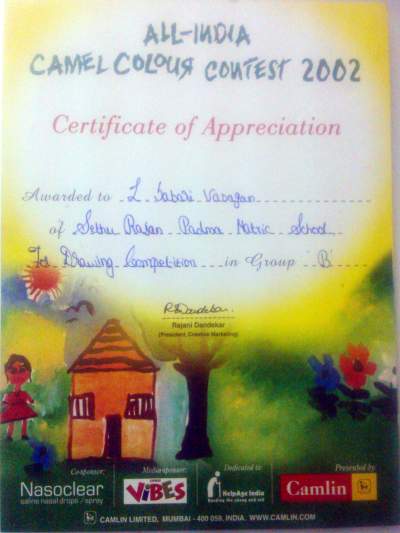 ALL-INDIA
CAMEL COLOUR CONTEST 2002
Certificate of Appreciation
Awarded to L Sabari Vasagan
of Sethu Rajan Padma Matric School
For Drawing Competition in Group 'B'
R Dandekar.
Rajani Dandekar
(President, Creative Marketing)
Co-sponsor:
Nasoclear
saline nasal drops / spray
Media sponsor:
VIBES
Dedicated to:
HelpAge India
Presented by
Camlin
CAMLIN LIMITED, MUMBAI - 400 059, INDIA. WWW.CAMLIN.COM